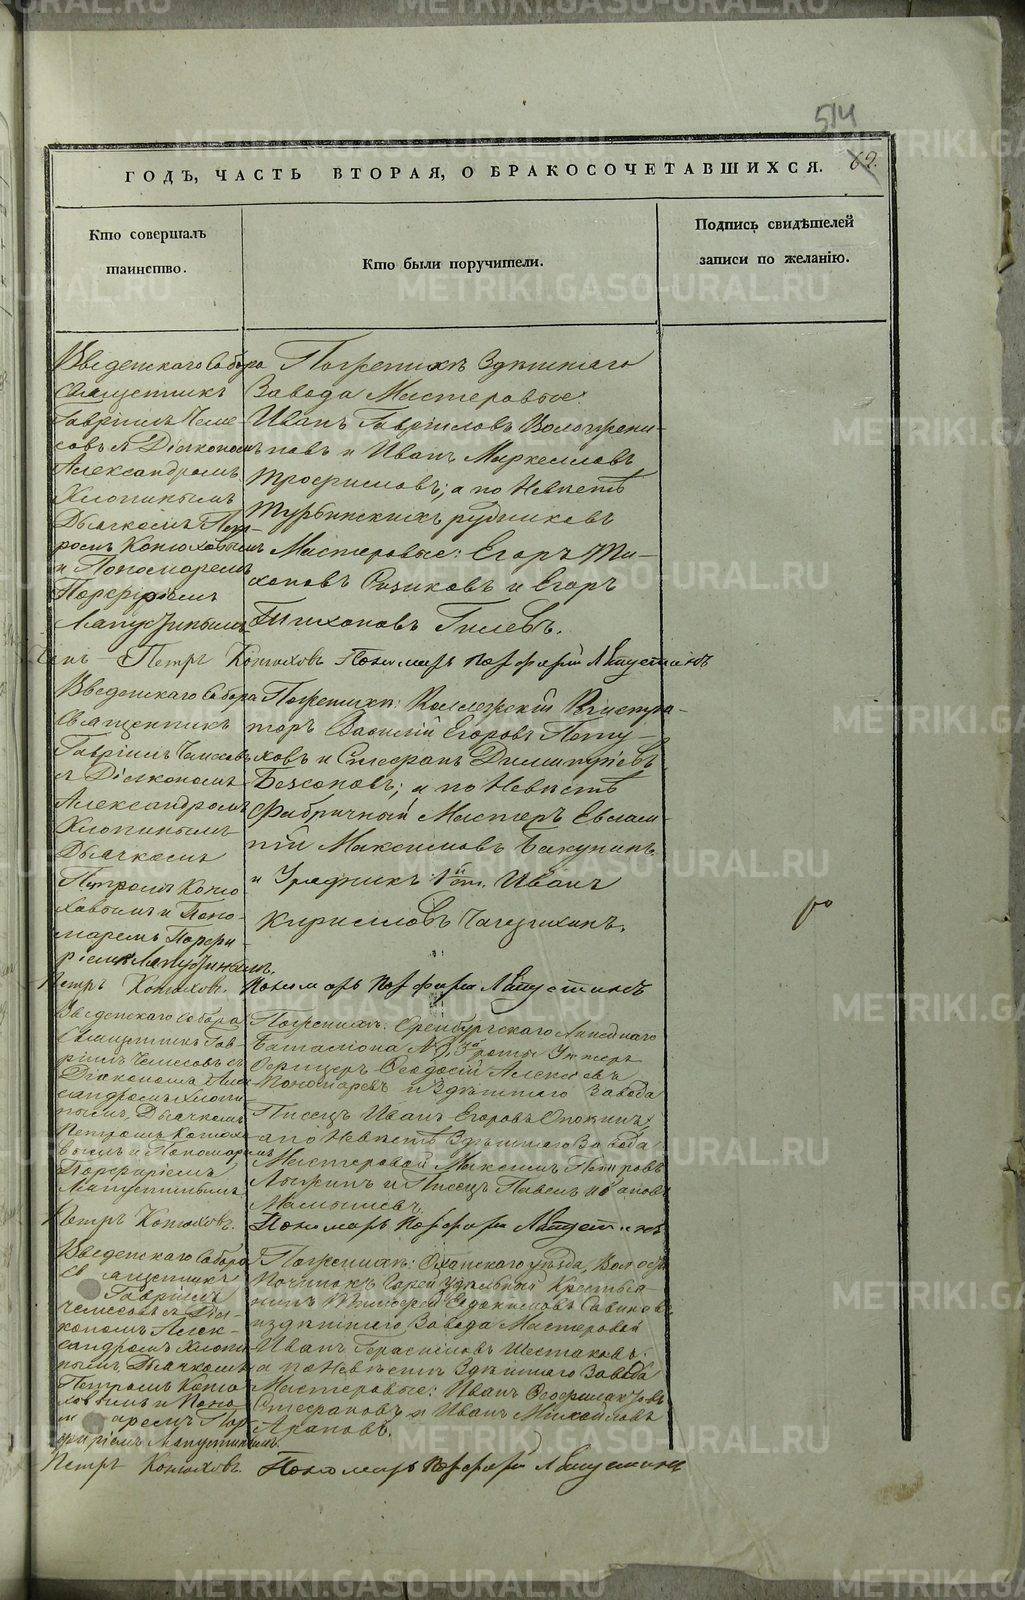 514
ГОДЪ, ЧАСТЬ ВТОРАЯ, О БРАКОСОЧЕТАВШИХСЯ.
69.
Кто совершалъ
таинство.
Кто были поручители.
Подпись свидѣтелей
записи по желанію.
Введенскаго Собора
Священникъ
Гавріилъ Чеме-
совъ съ Діакономъ
Александромъ
Хлопинымъ
Дьячкомъ Пет-
ромъ Конюховымъ
и Пономаремъ
Порфиріемъ
Лапустинымъ
По женихѣ Здѣшняго
Завода Мастеровые:
Иванъ Гавріиловъ
и Иванъ Маркелловъ
Трофимовъ; а по Невѣстѣ
Турьинскихъ рудниковъ
Мастеровые: Егоръ Ти-
хоновъ Розиковъ и Егоръ
Тихоновъ Гилевъ.
Петръ Конюховъ Пономарь Порфирий Лапустинъ
Введенскаго Собора
Священникъ
Гавріилъ Чемесовъ
съ Діакономъ
Александромъ
Хлопинымъ
Дьячкомъ
Петромъ Коню
ховымъ и Поно-
маремъ Порфи-
ріемъ Лапустинымъ.
По женихѣ: Коллежскій Регистра-
торъ Василій Егоровъ Пету-
ховъ и Стефанъ Димитріевъ
Безсоновъ; а по Невѣстѣ
Фабричный Мастеръ Евлам-
пій Максимовъ Бакунинъ
и Урядникъ 1й ст. Иванъ
Кирилловъ
Петръ Конюховъ. Пономарь Порфири Лапустинъ
Введенскаго Собора
Священникъ Гав-
ріилъ Чемесовъ съ
Діакономъ Але
ксандромъ Хлопи
нымъ Дьячкомъ
Петромъ Конюхо
вымъ и Пономаремъ
Порфиріемъ
Лапустинымъ
По женихѣ: Оренбургскаго Линейнаго
Баталіона № 3й роты Унтеръ
Офицеръ Феодосій Алексѣевъ
Пономаревъ и Здѣшняго Завода
Писецъ Иванъ Егоровъ
а по Невѣстѣ Здѣшняго Завода
Мастеровой Максимъ Петровъ
и Писецъ Павелъ
Мамышевъ.
Петръ Конюховъ. Пономарь Порфири Лапустинъ
Введенскаго Собора
Священникъ
Гавріилъ
Чемесовъ съ Діа-
кономъ Алек-
сандромъ Хлопи
нымъ Дьячкомъ
Петромъ Коню
ховымъ и Поно
маремъ Пор
фиріемъ Лапустинымъ.
По женихѣ: Оханскаго уѣзда,
Удѣльный Крестья-
нинъ Евдокимовъ Савинъ
и здѣшняго Завода Мастеровой
Иванъ Герасимовъ Шестаковъ;
а по Невѣстѣ Здѣшняго Завода
Мастеровые: Иванъ Феофилактовъ
Стефановъ и Иванъ Михайловъ
Араповъ.
Петръ Конюховъ. Пономарь Порфири Лапустинъ
METRIKI.GASO-URAL.RU